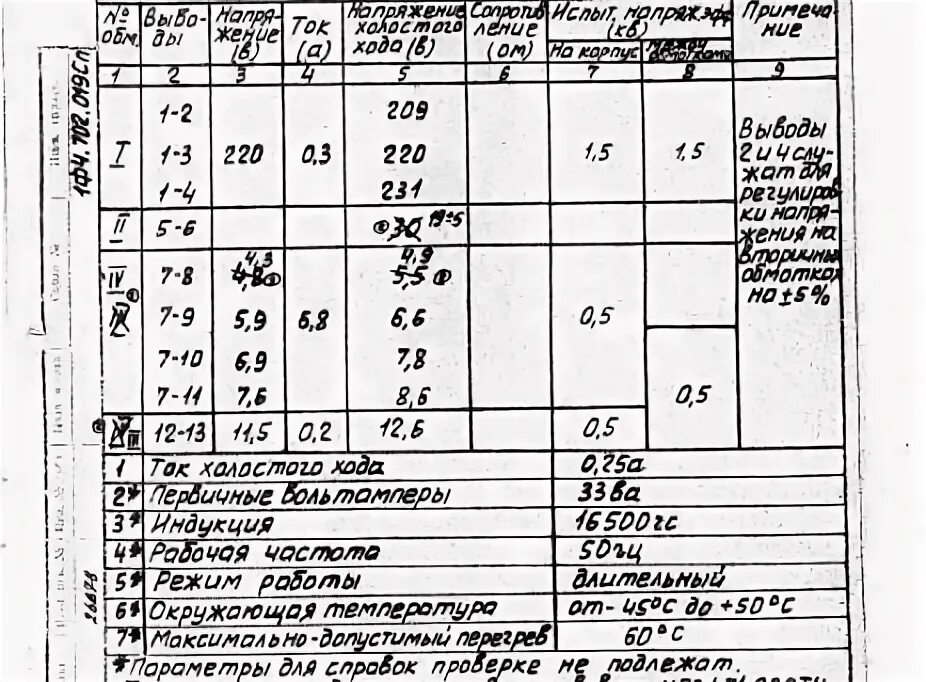 № обм. Выводы Напряжение (в) Ток (а) Напряжение холостого хода (в) Сопротивление (ом) Испыт. напряж. (кв) На корпус Между обмотками Примечание
1 2 3 4 5 6 7 8 9
1-2 209
I 1-3 220 0,3 220 1,5 1,5
1-4 231
II 5-6 30 19±5
IV 7-8 4,8 4,3 5,5 4,9
7-9 5,9 6,8 6,6 0,5
7-10 6,9 7,8
7-11 7,6 8,6 0,5
III 12-13 11,5 0,2 12,6 0,5
Выводы
2 и 4 слу-
жат для
регулиров
ки напря-
жения на
вторичных
обмотках
на ±5%
1 Ток холостого хода 0,25а
2* Первичные вольтамперы 33ва
3* Индукция 16500гс
4* Рабочая частота 50гц
5* Режим работы длительный
6* Окружающая температура от -45°С до +50°С
7* Максимально-допустимый перегрев 60°С
*Параметры для справок проверке не подлежат.
26878